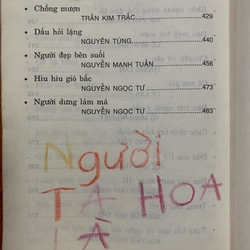 • Chống mượn
TRẦN KIM TRẮC 429
• Dấu hỏi lặng
NGUYÊN TÙNG 440
• Người đẹp bên suối
NGUYỄN MẠNH TUẤN 456
• Hiu hiu gió bấc
NGUYỄN NGỌC TƯ 473
• Người dưng làm má
NGUYỄN NGỌC TƯ 483
Người
TA HOA
LÀ